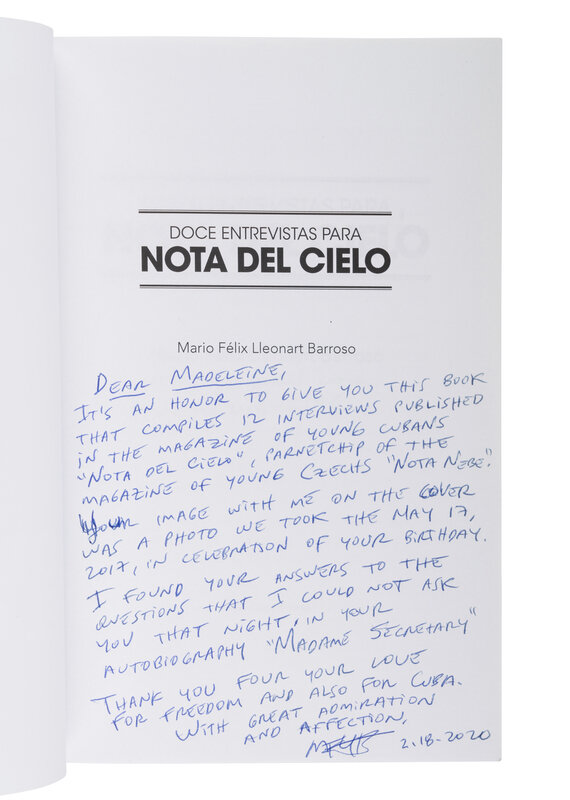 DOCE ENTREVISTAS PARA
NOTA DEL CIELO
Mario Félix Lleonart Barroso
DEAR MADELEINE,
IT'S AN HONOR TO GIVE YOU THIS BOOK
THAT COMPILES 12 INTERVIEWS PUBLISHED
IN THE MAGAZINE OF YOUNG CUBANS
"NOTA DEL CIELO", PARNETCHIP OF THE
MAGAZINE OF YOUNG CZECHS "NOTA NEBE".
YOUR IMAGE WITH ME ON THE COVER
WAS A PHOTO WE TOOK THE MAY 17,
2017, IN CELEBRATION OF YOUR BIRTHDAY.
I FOUND YOUR ANSWERS TO THE
QUESTIONS THAT I COULD NOT ASK
YOU THAT NIGHT, IN YOUR
AUTOBIOGRAPHY "MADAME SECRETARY"
THANK YOU FOUR YOUR LOVE
FOR FREEDOM AND ALSO FOR CUBA.
WITH GREAT ADMIRATION
AND AFFECTION,
2.18-2020